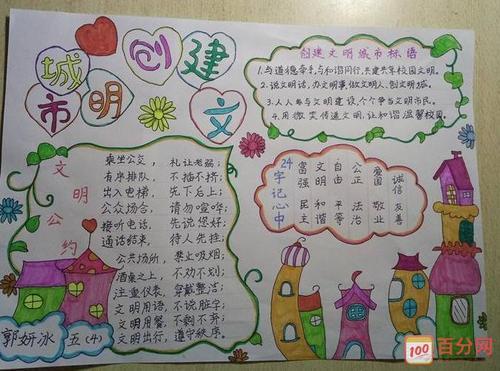 创建
文明
城市
创建文明城市标语
1.与道德牵手,与和谐同行,共建共享校园文明。
2.说文明话,办文明事,做文明人,创文明城。
3.人人参与文明建设,个个争当文明市民。
4.用微笑传递文明,让和谐温馨校园。
文明公约
乘坐公交,礼让老弱;
有序排队,不插不挤;
出入电梯,先下后上;
公众场合,请勿喧哗;
接听电话,先说您好;
通话结束,待人先挂;
公共场所,禁止吸烟;
酒桌之上,不劝不划;
注重仪表,穿戴整洁;
文明用语,不说脏字;
文明用餐,不剩不弃;
文明出行,遵守秩序。
24字记心中
富强 民主
文明 和谐
自由 平等
公正 法治
爱国 敬业
诚信 友善
郭妍冰 五(4)
100 百分网